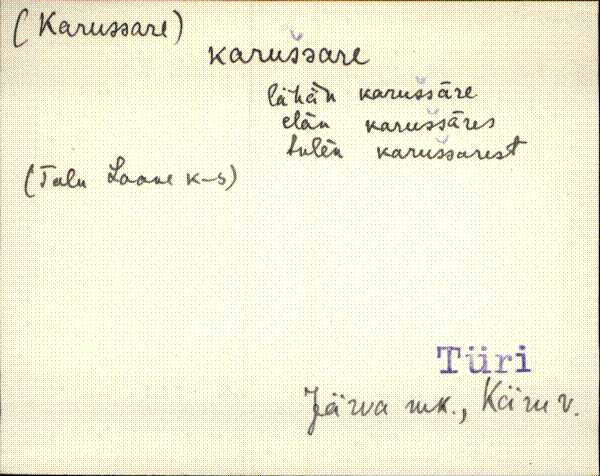 (Karussare)
karušsare
lähän karušsāre
elän karušsāres
tulen karušsarest
(Talu Laane k-s)
Türi
Järva mk., Käru v.